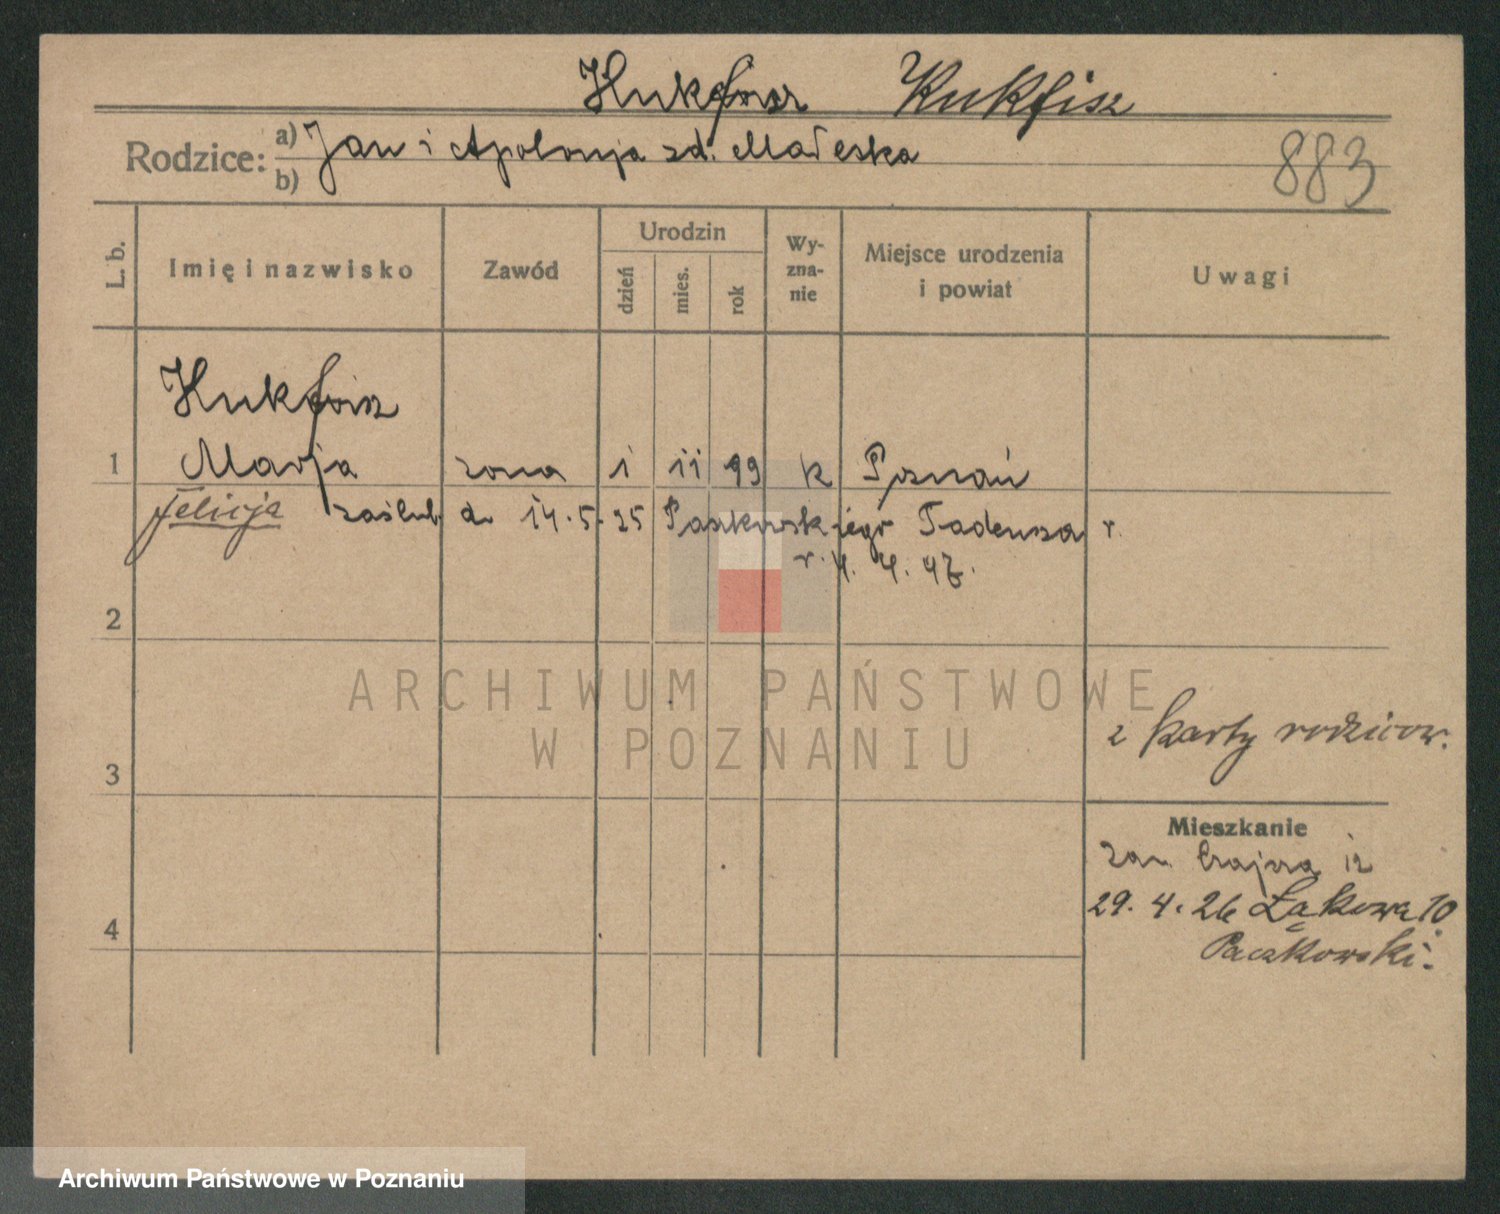 Kukfisz Kukfisz
Rodzice: a) Jan i Apolonja zd. Małeska
b)
883
L. b.
Imię i nazwisko
Zawód
Urodzin
dzień
mies.
rok
Wy-
zna-
nie
Miejsce urodzenia
i powiat
Uwagi
Kukfisz
1 Marja żona 1 11 99 k Poznań
Felicja zaślub. d. 14.5.25 Paszkowskiego Tadeusza r.
r. 4. 4. 97.
2
ARCHIWUM PAŃSTWOWE
W POZNANIU
z karty rodziców.
3
Mieszkanie
zam. 12
29. 4. 26 Łąkowa 10
Paczkowski.
4
Archiwum Państwowe w Poznaniu